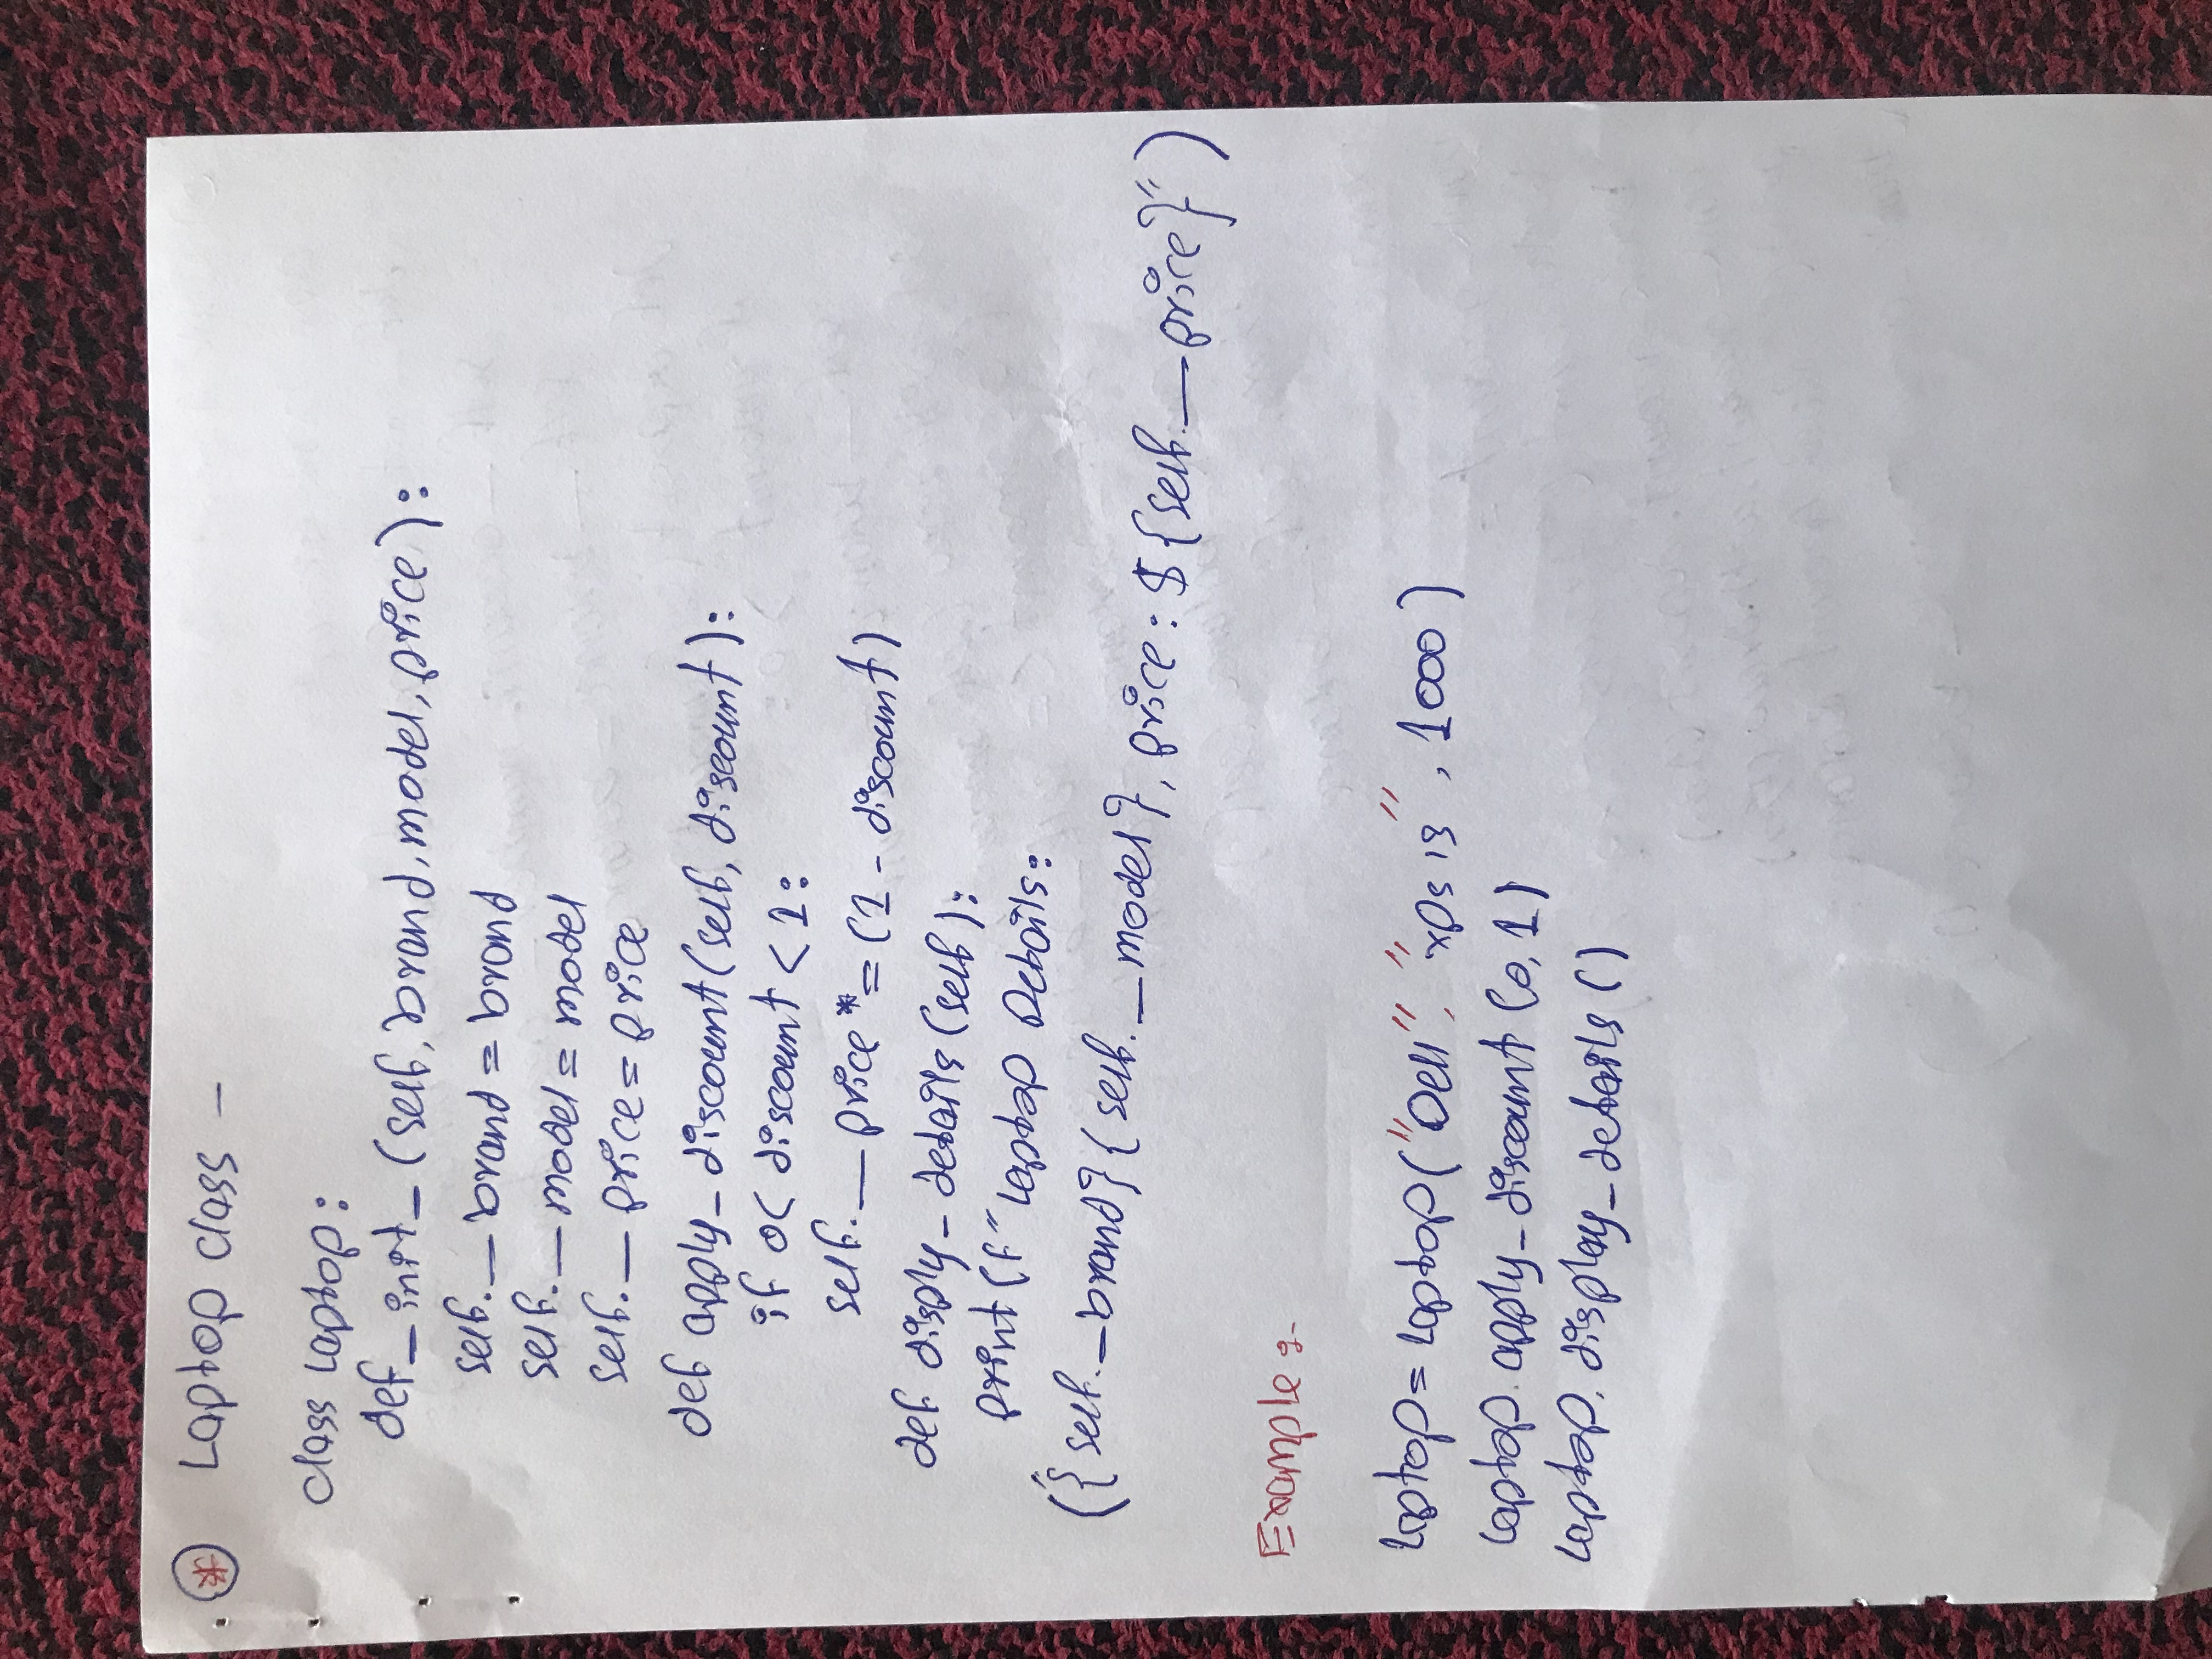 * Laptop class -
class Laptop:
def _ init _ (self, brand, model, price):
self. _ brand = brand
self. _ model = model
self. _ price = price
def apply_discount(self, discount):
if 0< discount < 1:
self. _ price *= (1 - discount)
def disply_details (self):
print (f" Laptop Details:
("{self. _brand} {self. _model}, price: $ {self. _ price}")
Example :-
laptop = Laptop ("Dell", "xps 13", 1000)
laptop. apply_discount (0,1)
laptop. display_details ()